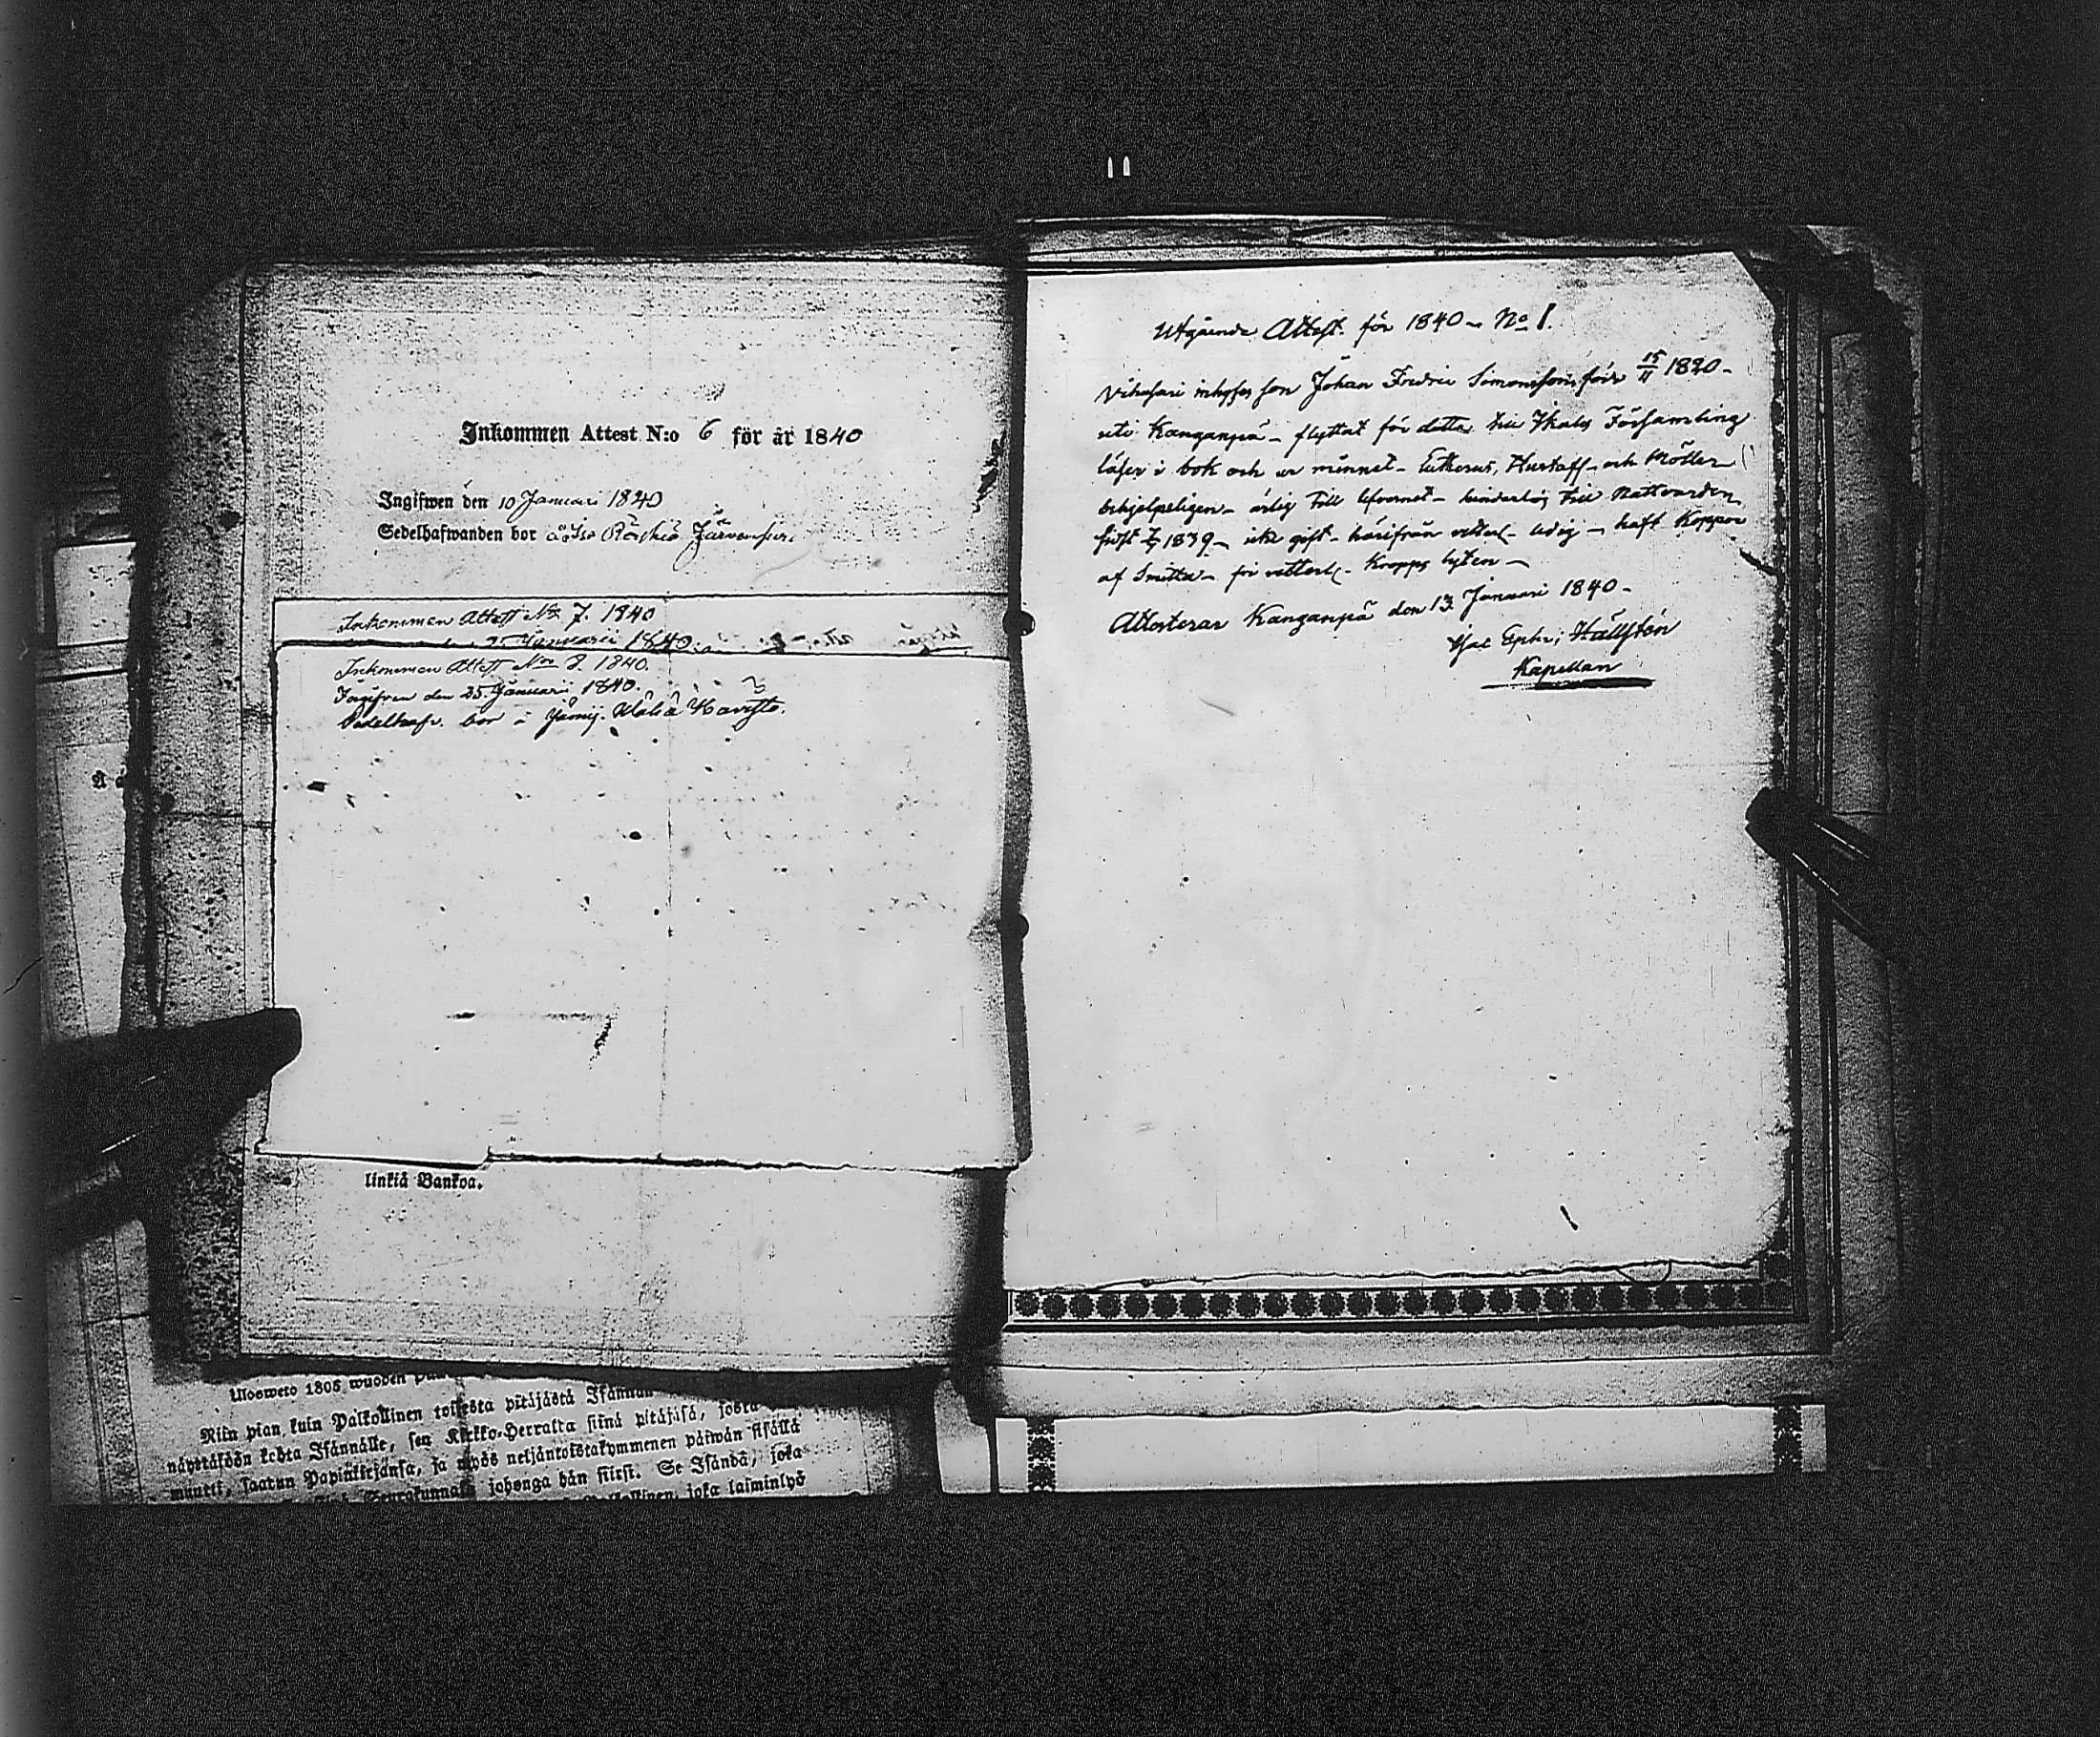 Inkommen Attest N:o 6 för år 1840
Ingifwen den 10 Januari 1840
Sedelhafwanden bor å Järvenpää
Inkommen Attest No 7. 1840
Januarii 1840.
Inkommen Attest No 8. 1840.
Ingifven den 25. Januarii 1840.
Sedelhafv. bor å Jämij.
linkiä Bankoa.
Ulosweto 1805 wuoden
Niin pian, kuin Palkollinen toisesta pitäjästä Isännän
näyttäköön kohta Isännälle, sen Kirkko-Herralta siinä pitäjäsä, josta
muutti, saatun Papinkirjansa, ja myös neljäntoistakymmenen päiwän sisällä
Seurakunnasa johonga hän siirsi. Se Isändä, joka
joka laiminlyö
Utgående Attest. för 1840 - No 1.
inhyses son Johan Fredric Simonsson född 15/11 1820 -
uti Kanganpä - flyttat för detta till Ikalis Församling
läser i bok och ur minnet - Lutherus, och Möller
behjelpeligen - ärlig till lefvernet - hinderlös till Nattvarden
sidst 1839 - icke gift - härifrån vetterl. ledig - haft Koppor
af Smitta - fri vetterl. Kropps lyten -
Attesterar Kanganpä den 13. Januari 1840 -
Isac Ephr; Hällstén
Kapellan